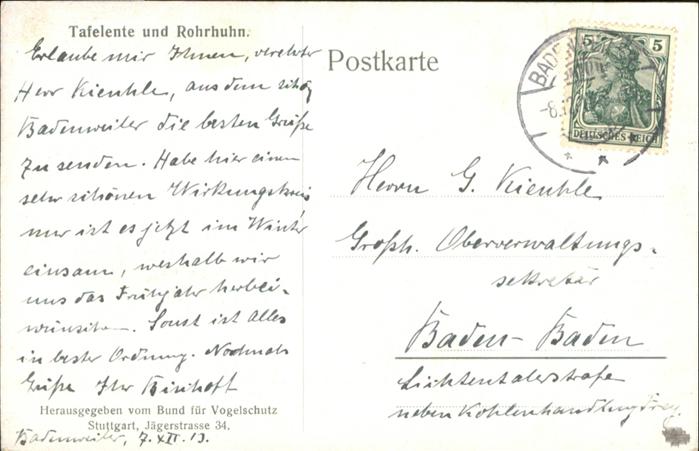 Tafelente und Rohrhuhn.
Erlaube mir Ihnen, verehrter
Herr Kienhle, aus dem schön
Badenweiler die besten Grüße
zu senden. Habe hier einen
sehr schönen Wirkungskreis
nur ist es jetzt im Winter
einsam, weshalb wir
uns das Frühjahr herbei-
wünschen. Sonst ist Alles
in bester Ordnung. Nochmals
Grüße Ihr Bischoff
Herausgegeben vom Bund für Vogelschutz
Stuttgart, Jägerstrasse 34.
Badenweiler, 7. XII. 13.
Postkarte
5 5
DEUTSCHES REICH
BADENW
-8.12
Herrn G. Kienhle
Großh. Oberverwaltungs-
sekretär
Baden-Baden
Lichtentalerstraße
neben Kohlenhandlung